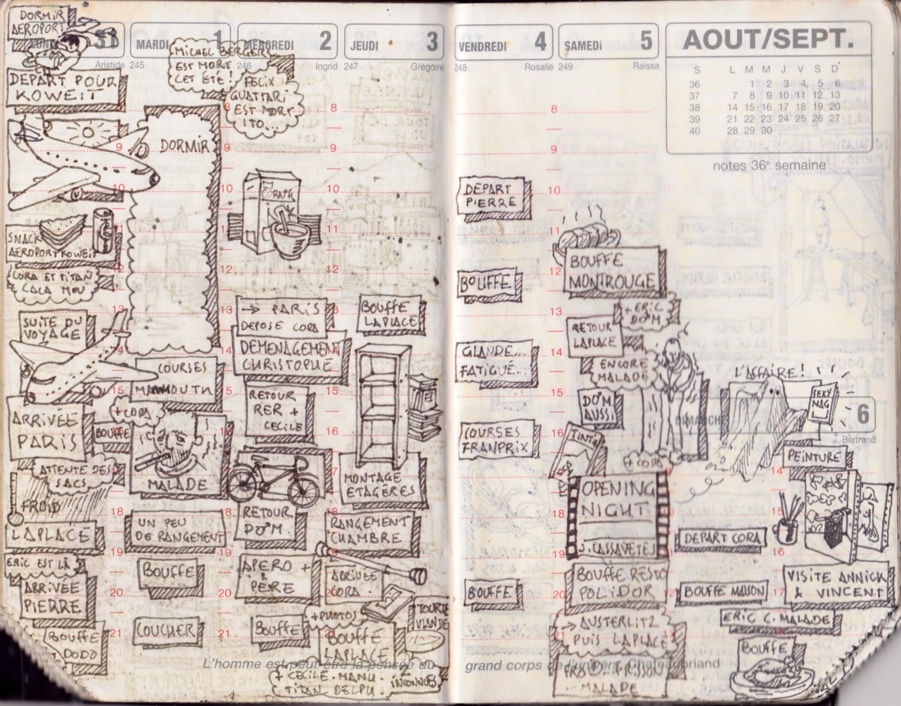 DORMIR
AEROPORT
LUNDI 31
Aristide 245
DEPART POUR
KOWEIT
SNACK
AEROPORT KOWEIT
CORA ET TITAN
CACA MOU
SUITE DU
VOYAGE
ARRIVÉE
PARIS
ATTENTE DES
SACS
FROID
LAPLACE
ERIC EST LÀ
ARRIVÉE
PIERRE
BOUFFE
DODO
MARDI 1
246
MICHEL BERGER
EST MORT
CET ÉTÉ!
DORMIR
COURSES
MAMMOUTH
+ CORA
BOUFFE
MALADE
UN PEU
DE RANGEMENT
BOUFFE
COUCHER
MERCREDI 2
Ingrid
FELIX
GUATTARI
EST MORT
ITO...
→ PARIS
DEPOSE CORA
DEMENAGEMENT
CHRISTOPHE
RETOUR
RER +
CECILE
RETOUR
DO'M.
APERO +
PERE
BOUFFE
JEUDI 3
247 Grégoire
BOUFFE
LAPLACE
MONTAGE
ETAGÈRES
RANGEMENT
CHAMBRE
ARRIVÉE
CORA.
+ PHOTOS
TOURTE
VIANDE
BOUFFE
LAPLACE
+ CECILE. MANU.
TITAN DELPU.
INCONNUES
L'homme est peut-être la pensée du
VENDREDI 4
248 Rosalie
DEPART
PIERRE
BOUFFE
GLANDE...
FATIGUE...
COURSES
FRANPRIX
BOUFFE
SAMEDI 5
249 Raïssa
BOUFFE
MONTROUGE
+ ERIC
DO'M
RETOUR
LAPLACE
ENCORE
MALADE
DO'M
AUSSI
TINTIN
+ CORA
OPENING
NIGHT
J. CASSAVETES
BOUFFE RESTO
POLIDOR
→ AUSTERLITZ
PUIS LAPLACE
FROID. FRISSON
MALADE
grand corps de l'univers. Chateaubriand
AOUT/SEPT.
S L M M J V S D
36 1 2 3 4 5 6
37 7 8 9 10 11 12 13
38 14 15 16 17 18 19 20
39 21 22 23 24 25 26 27
40 28 29 30
notes 36e semaine
DIMANCHE 6
Bertrand
L'AFFAIRE!
SEXY
MAG
PEINTURE
DEPART CORA
BOUFFE MAISON
VISITE ANNICK
& VINCENT
ERIC C. MALADE
BOUFFE